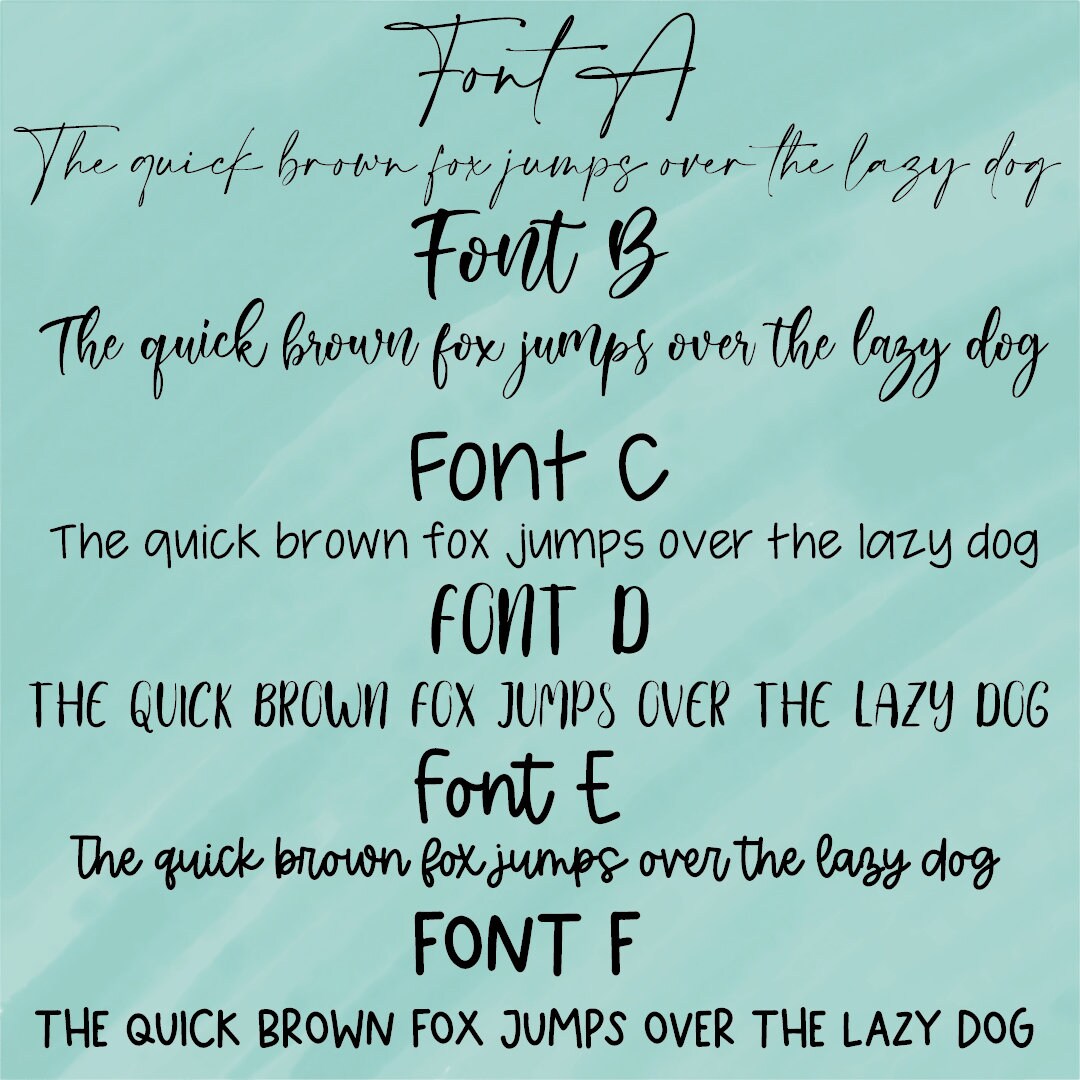 Font A
The quick brown fox jumps over the lazy dog
Font B
The quick brown fox jumps over the lazy dog
Font C
The quick brown fox jumps over the lazy dog
FONT D
THE QUICK BROWN FOX JUMPS OVER THE LAZY DOG
Font E
The quick brown fox jumps over the lazy dog
FONT F
THE QUICK BROWN FOX JUMPS OVER THE LAZY DOG